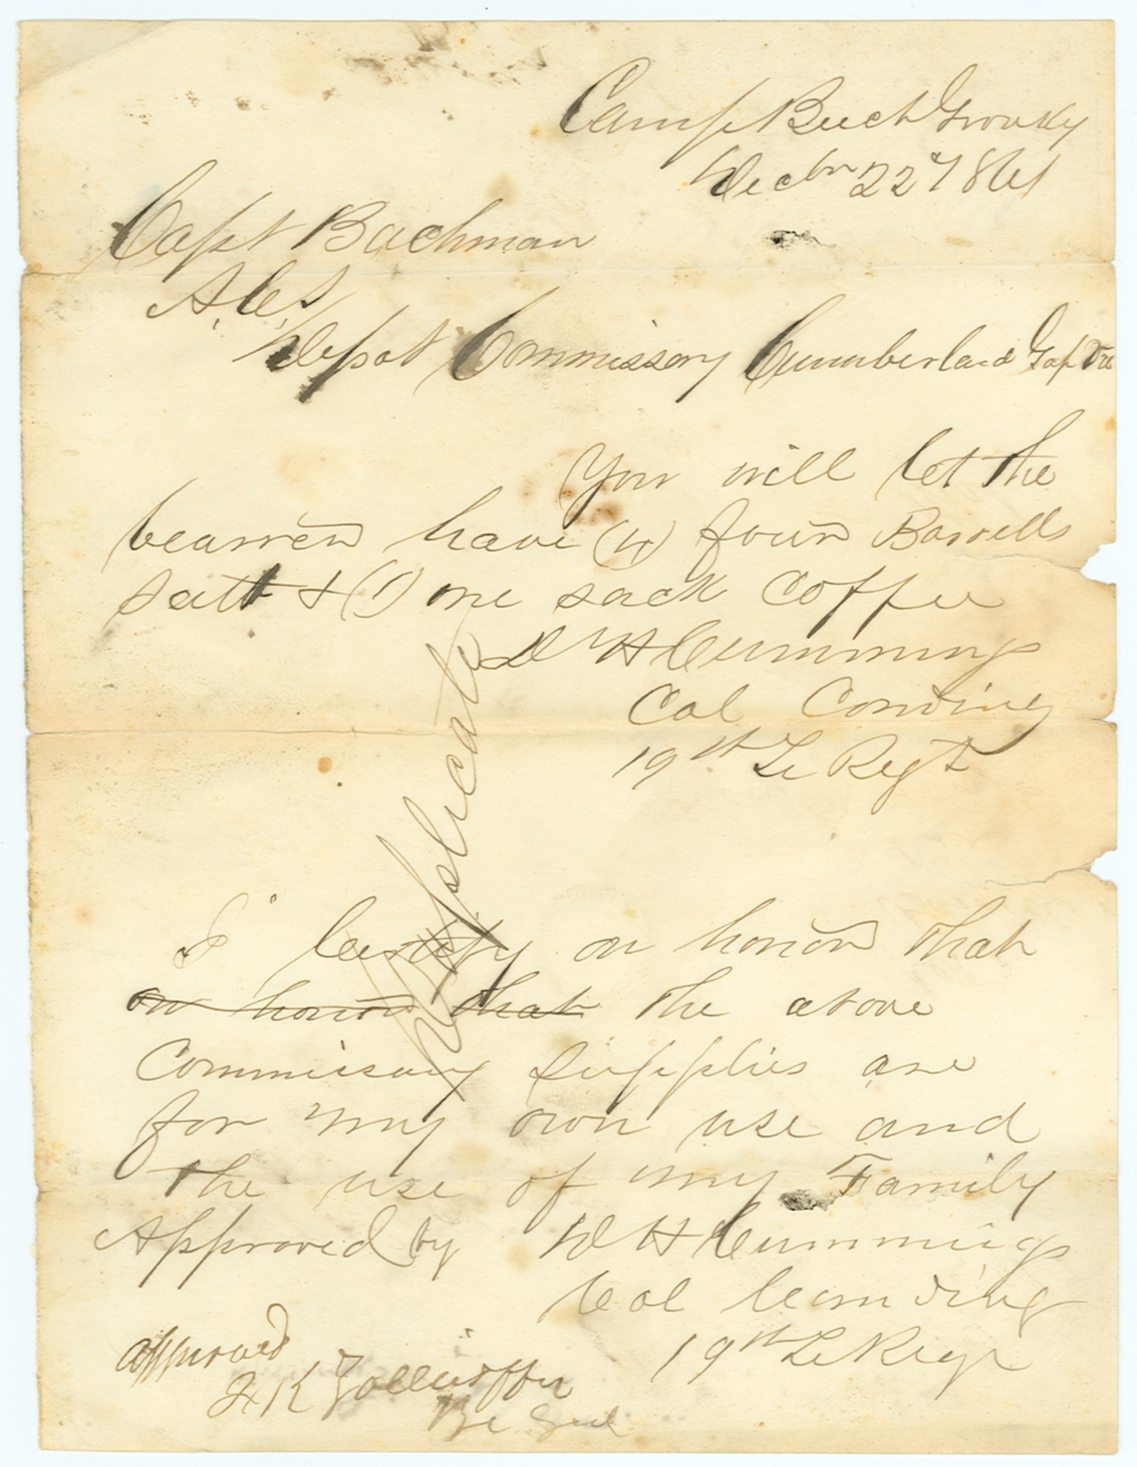 Camp Beech Grove Ky
Decbr 22d 1861
Capt Bachman
A.C.S
Depot Commissary Cumberland Gap Ten
You will let the
bearrer have (4) four Barrells
Salt & (1) one sack Coffee
D H Cummings
Col Comding
19th Te Regt
Duplicate
I Certify on honor that
on honor that the above
Commissary Supplies are
for my own use and
the use of my Family
Approved by D H Cummings
Col Comding
19th Te Regt
approved
F K Zollicoffer
Br Genl